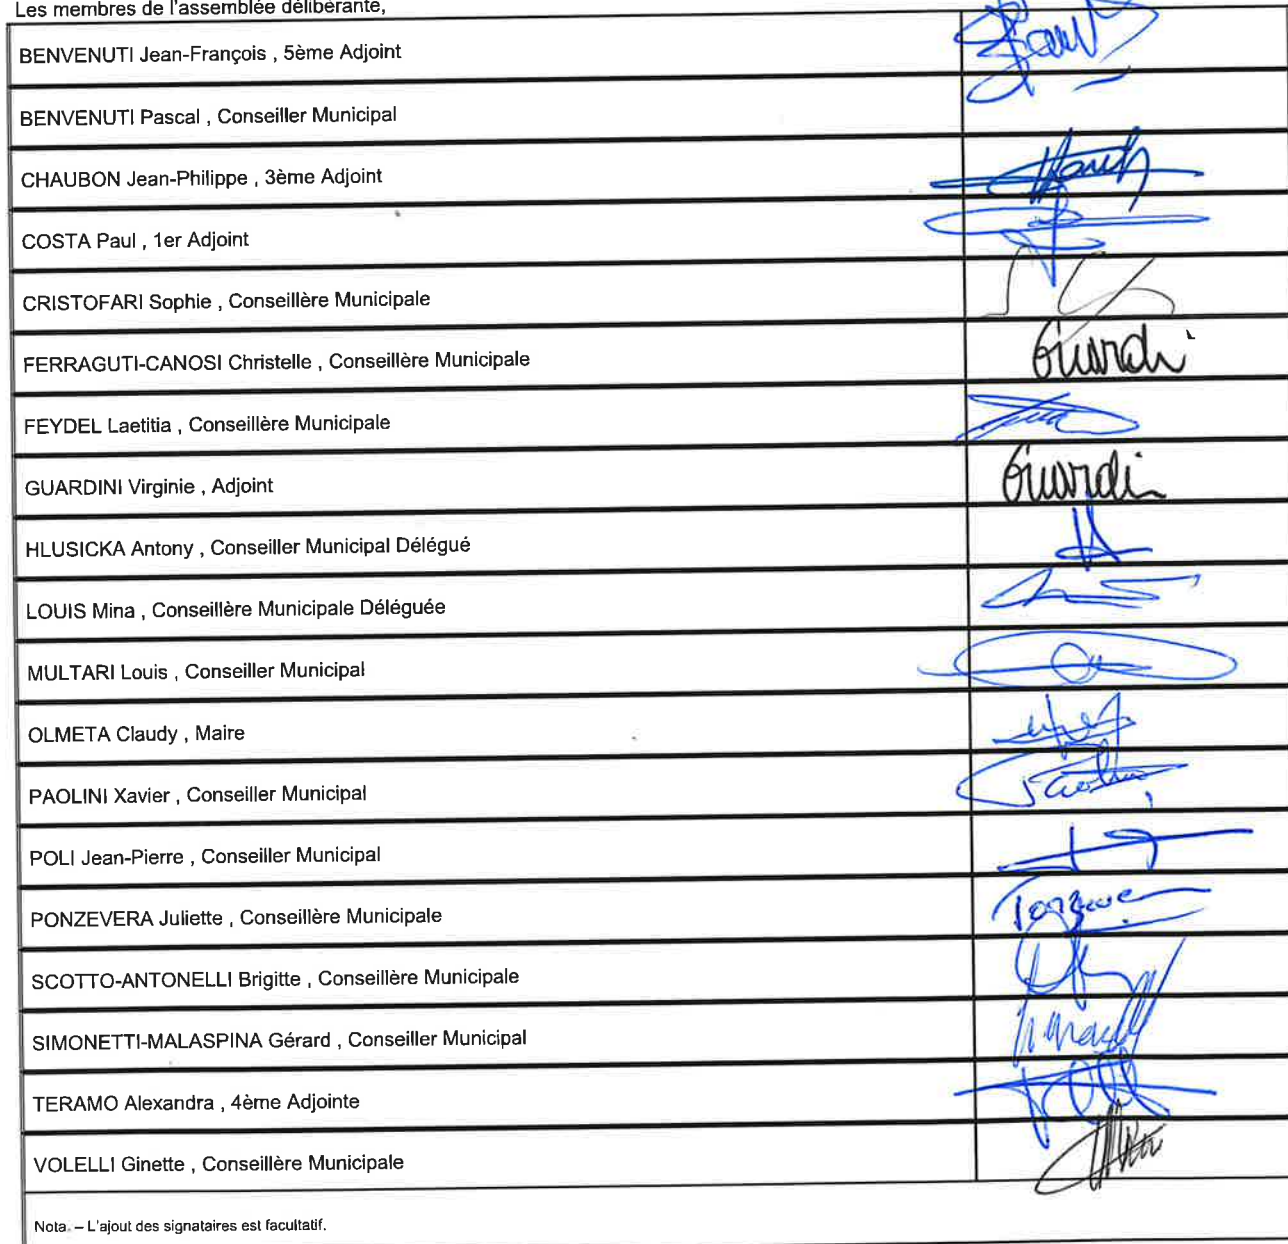 Les membres de l'assemblée délibérante,
BENVENUTI Jean-François , 5ème Adjoint
BENVENUTI Pascal , Conseiller Municipal
CHAUBON Jean-Philippe , 3ème Adjoint
COSTA Paul , 1er Adjoint
CRISTOFARI Sophie , Conseillère Municipale
FERRAGUTI-CANOSI Christelle , Conseillère Municipale Guardi
FEYDEL Laetitia , Conseillère Municipale
GUARDINI Virginie , Adjoint Guardi
HLUSICKA Antony , Conseiller Municipal Délégué
LOUIS Mina , Conseillère Municipale Déléguée
MULTARI Louis , Conseiller Municipal
OLMETA Claudy , Maire
PAOLINI Xavier , Conseiller Municipal
POLI Jean-Pierre , Conseiller Municipal
PONZEVERA Juliette , Conseillère Municipale
SCOTTO-ANTONELLI Brigitte , Conseillère Municipale
SIMONETTI-MALASPINA Gérard , Conseiller Municipal
TERAMO Alexandra , 4ème Adjointe
VOLELLI Ginette , Conseillère Municipale
Nota. – L'ajout des signataires est facultatif.